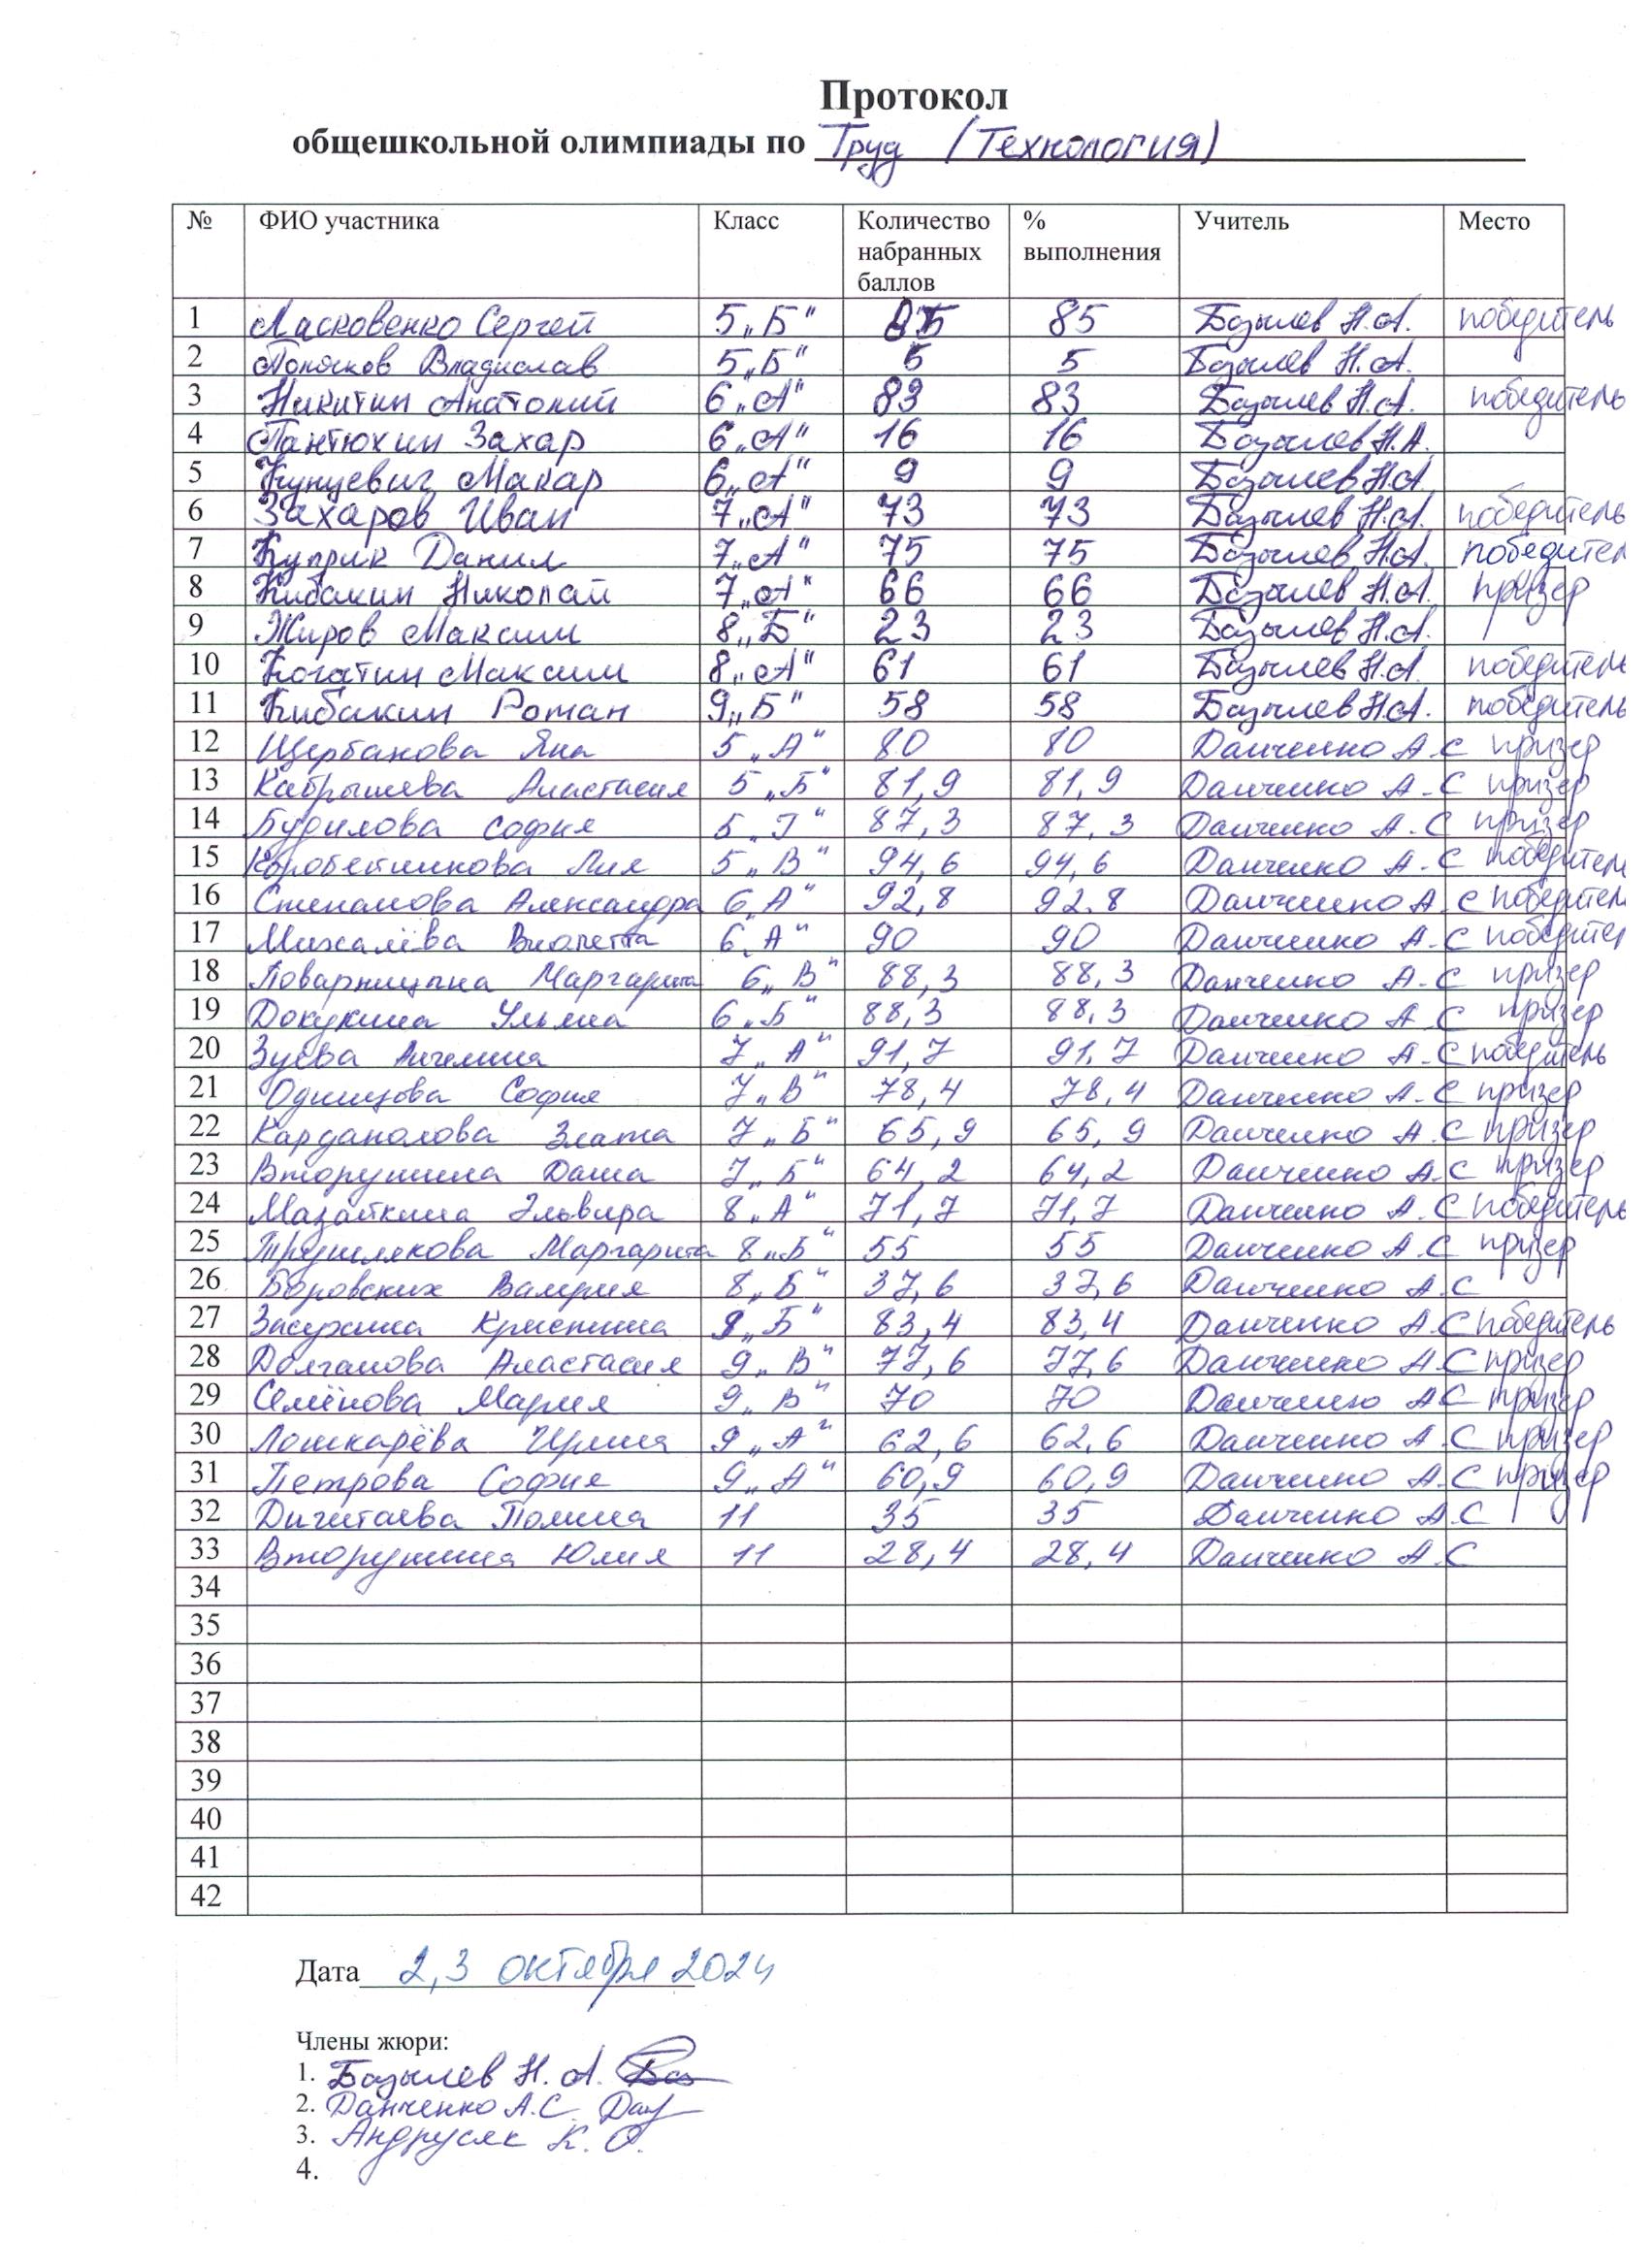 Протокол
общешкольной олимпиады по Труд (Технология)
№ ФИО участника Класс Количество набранных баллов % выполнения Учитель Место
1 Ласковенко Сергей 5 „Б" 85 85 Базылев Н.А. победитель
2 Владислав 5 „Б" 5 5 Базылев Н.А.
3 Никитин Анатолий 6 „А" 83 83 Базылев Н.А. победитель
4 Пантюхин Захар 6 „А" 16 16 Базылев Н.А.
5 Кунцевич Макар 6 „А" 9 9 Базылев Н.А.
6 Захаров Иван 7 „А" 73 73 Базылев Н.А. победитель
7 Куприк Данил 7 „А" 75 75 Базылев Н.А. победител
8 Кибакин Николай 7 „А" 66 66 Базылев Н.А. призер
9 Жиров Максим 8 „Б" 23 23 Базылев Н.А.
10 Когатин Максим 8 „А" 61 61 Базылев Н.А. победитель
11 Кибакин Роман 9 „Б" 58 58 Базылев Н.А. победитель
12 Щербакова Яна 5 „А" 80 80 Данченко А.С призер
13 Кабрышева Анастасия 5 „Б" 81,9 81,9 Данченко А.С призер
14 Будилова София 5 „Г" 87,3 87,3 Данченко А.С призер
15 Коробейникова Лия 5 „В" 94,6 94,6 Данченко А.С победитель
16 Степанова Александра 6 „А" 92,8 92,8 Данченко А.С победитель
17 Михалёва Виолетта 6 „А" 90 90 Данченко А.С победител
18 Поварницына Маргарита 6 „В" 88,3 88,3 Данченко А.С призер
19 Докукина Ульяна 6 „Б" 88,3 88,3 Данченко А.С призер
20 Зуева Ангелина 7 „А" 91,7 91,7 Данченко А.С победитель
21 Одинцова София 7 „В" 78,4 78,4 Данченко А.С призер
22 Карданолова Злата 7 „Б" 65,9 65,9 Данченко А.С призер
23 Вторушина Даша 7 „Б" 64,2 64,2 Данченко А.С призер
24 Мазайкина Эльвира 8 „А" 71,7 71,7 Данченко А.С победитель
25 Трушлякова Маргарита 8 „Б" 55 55 Данченко А.С призер
26 Боровских Валерия 8 „Б" 37,6 37,6 Данченко А.С
27 Засухина Кристина 9 „Б" 83,4 83,4 Данченко А.С победитель
28 Долганова Анастасия 9 „В" 77,6 77,6 Данченко А.С призер
29 Семёнова Мария 9 „В" 70 70 Данченко А.С призер
30 Лошкарёва Ирина 9 „А" 62,6 62,6 Данченко А.С призер
31 Петрова София 9 „А" 60,9 60,9 Данченко А.С призер
32 Дигитаева Полина 11 35 35 Данченко А.С
33 Вторушина Юлия 11 28,4 28,4 Данченко А.С
34
35
36
37
38
39
40
41
42
Дата 2,3 октября 2024
Члены жюри:
1. Базылев Н.А.
2. Данченко А.С.
3. Андрусяк К. О.
4.